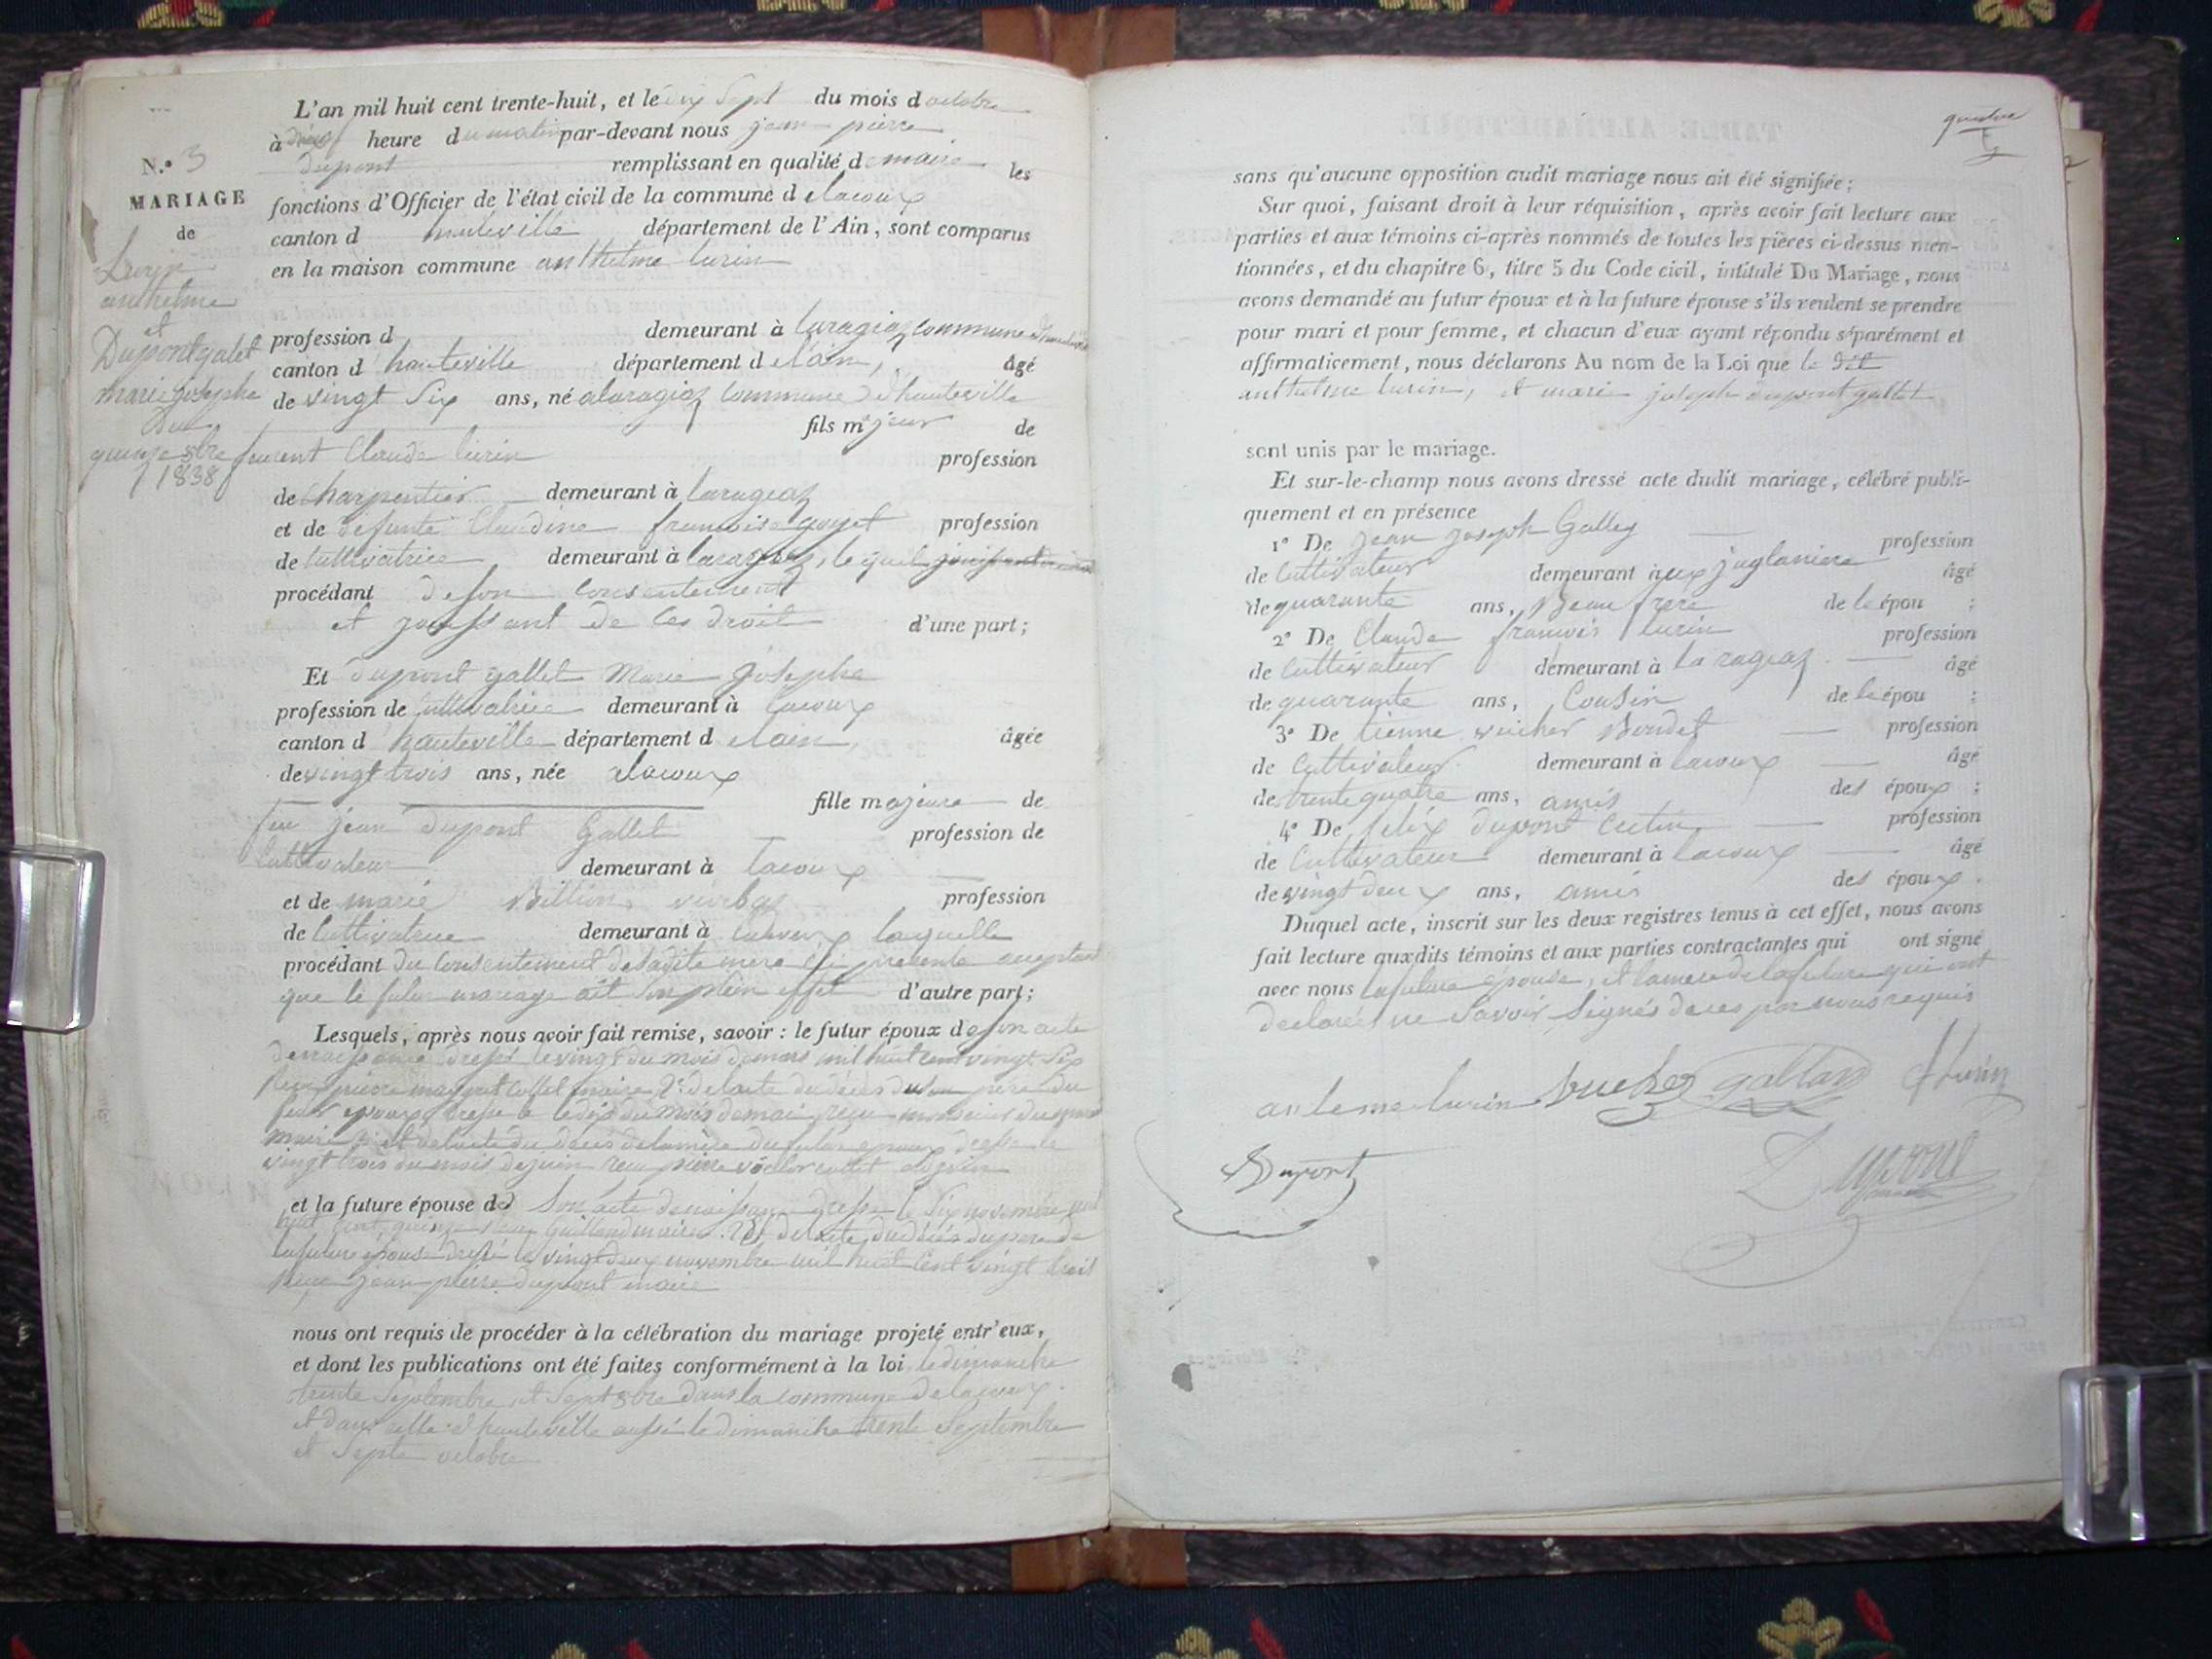 N.º 3
MARIAGE
de
Lurin
anthelme
et
Dupontgalet
marie josephe
Du
quinze 8bre
1838
L'an mil huit cent trente-huit, et le dix Sept du mois d octobre
à heure du matin par-devant nous jean pierre
dupont remplissant en qualité de maire les
fonctions d'Officier de l'état civil de la commune d elacoux
canton d hauteville département de l'Ain, sont comparus
en la maison commune anthelme lurin
profession d demeurant à laragiaz commune d'hauteville
canton d hauteville département d elain, âgé
de vingt Six ans, né alaragiaz commune d'hauteville
fils majeur de
Claude lurin profession
de charpentier demeurant à larageaz
et de defunte Claudine francoise goyet profession
de Cultivatrice demeurant à laragiaz, le quel
procédant de son consentement
et jouissant de ces droit d'une part;
Et dupont gallet Marie josephe
profession de Cultivatrice demeurant à lacoux
canton d hauteville département d elain, âgée
de vingt trois ans, née alacoux
fille majeure de
feu jean dupont Gallet profession de
Cultivateur demeurant à lacoux
et de marie Billion profession
de Cultivatrice demeurant à lacoux laquelle
procédant du Consentement de sadite mere ici presente
que le futur mariage ait son plein effet d'autre part;
Lesquels, après nous avoir fait remise, savoir: le futur époux de son acte
de naissance dressé le vingt du mois de mars mil huit cent vingt Six
pierre maire 2º de lacte du déces du pere du
futur epoux du mois de mai
maire et de lacte du déces de lamère du futur epoux dressé le
vingt trois du mois de juin recu pierre
et la future épouse de Son acte de naissance dressé le Six novembre mil
huit cent quinze maire. 2º Et de lacte du déces du pere de
la future épouse dressé le vingt deux novembre mil huit Cent vingt trois
jean pierre dupont maire
nous ont requis de procéder à la célébration du mariage projeté entr'eux,
et dont les publications ont été faites conformément à la loi le dimanche
trente Septembre et Sept 8bre dans la commune de lacoux
et dans celle d'hauteville aussi le dimanche trente Septembre
et Septe octobre
sans qu'aucune opposition audit mariage nous ait été signifiée;
Sur quoi, faisant droit à leur réquisition, après avoir fait lecture aux
parties et aux témoins ci-après nommés de toutes les pièces ci-dessus men-
tionnées, et du chapitre 6, titre 5 du Code civil, intitulé Du Mariage, nous
avons demandé au futur époux et à la future épouse s'ils veulent se prendre
pour mari et pour femme, et chacun d'eux ayant répondu séparément et
affirmativement, nous déclarons Au nom de la Loi que le dit
anthelme lurin, et marie joseph dupont gallet
sont unis par le mariage.
Et sur-le-champ nous avons dressé acte dudit mariage, célébré publi-
quement et en présence
1º De Jean Joseph Galley profession
de Cultivateur demeurant âgé
de quarante ans, Beau frere de le épou ;
2º De Claude francois lurin profession
de Cultivateur demeurant à la rageaz âgé
de quarante ans, Cousin de le épou ;
3º De tienne Bondet profession
de Cultivateur demeurant à lacoux âgé
de trente quatre ans, amis des époux ;
4º De felix dupont profession
de Cultivateur demeurant à lacoux âgé
de vingt deux ans, amis des époux.
Duquel acte, inscrit sur les deux registres tenus à cet effet, nous avons
fait lecture auxdits témoins et aux parties contractantes qui ont signé
avec nous la future épouse, et la mere de la future qui ont
declarées ne Savoir Signés de ces par nous requis
antleme lurin
Dupont
Dupont